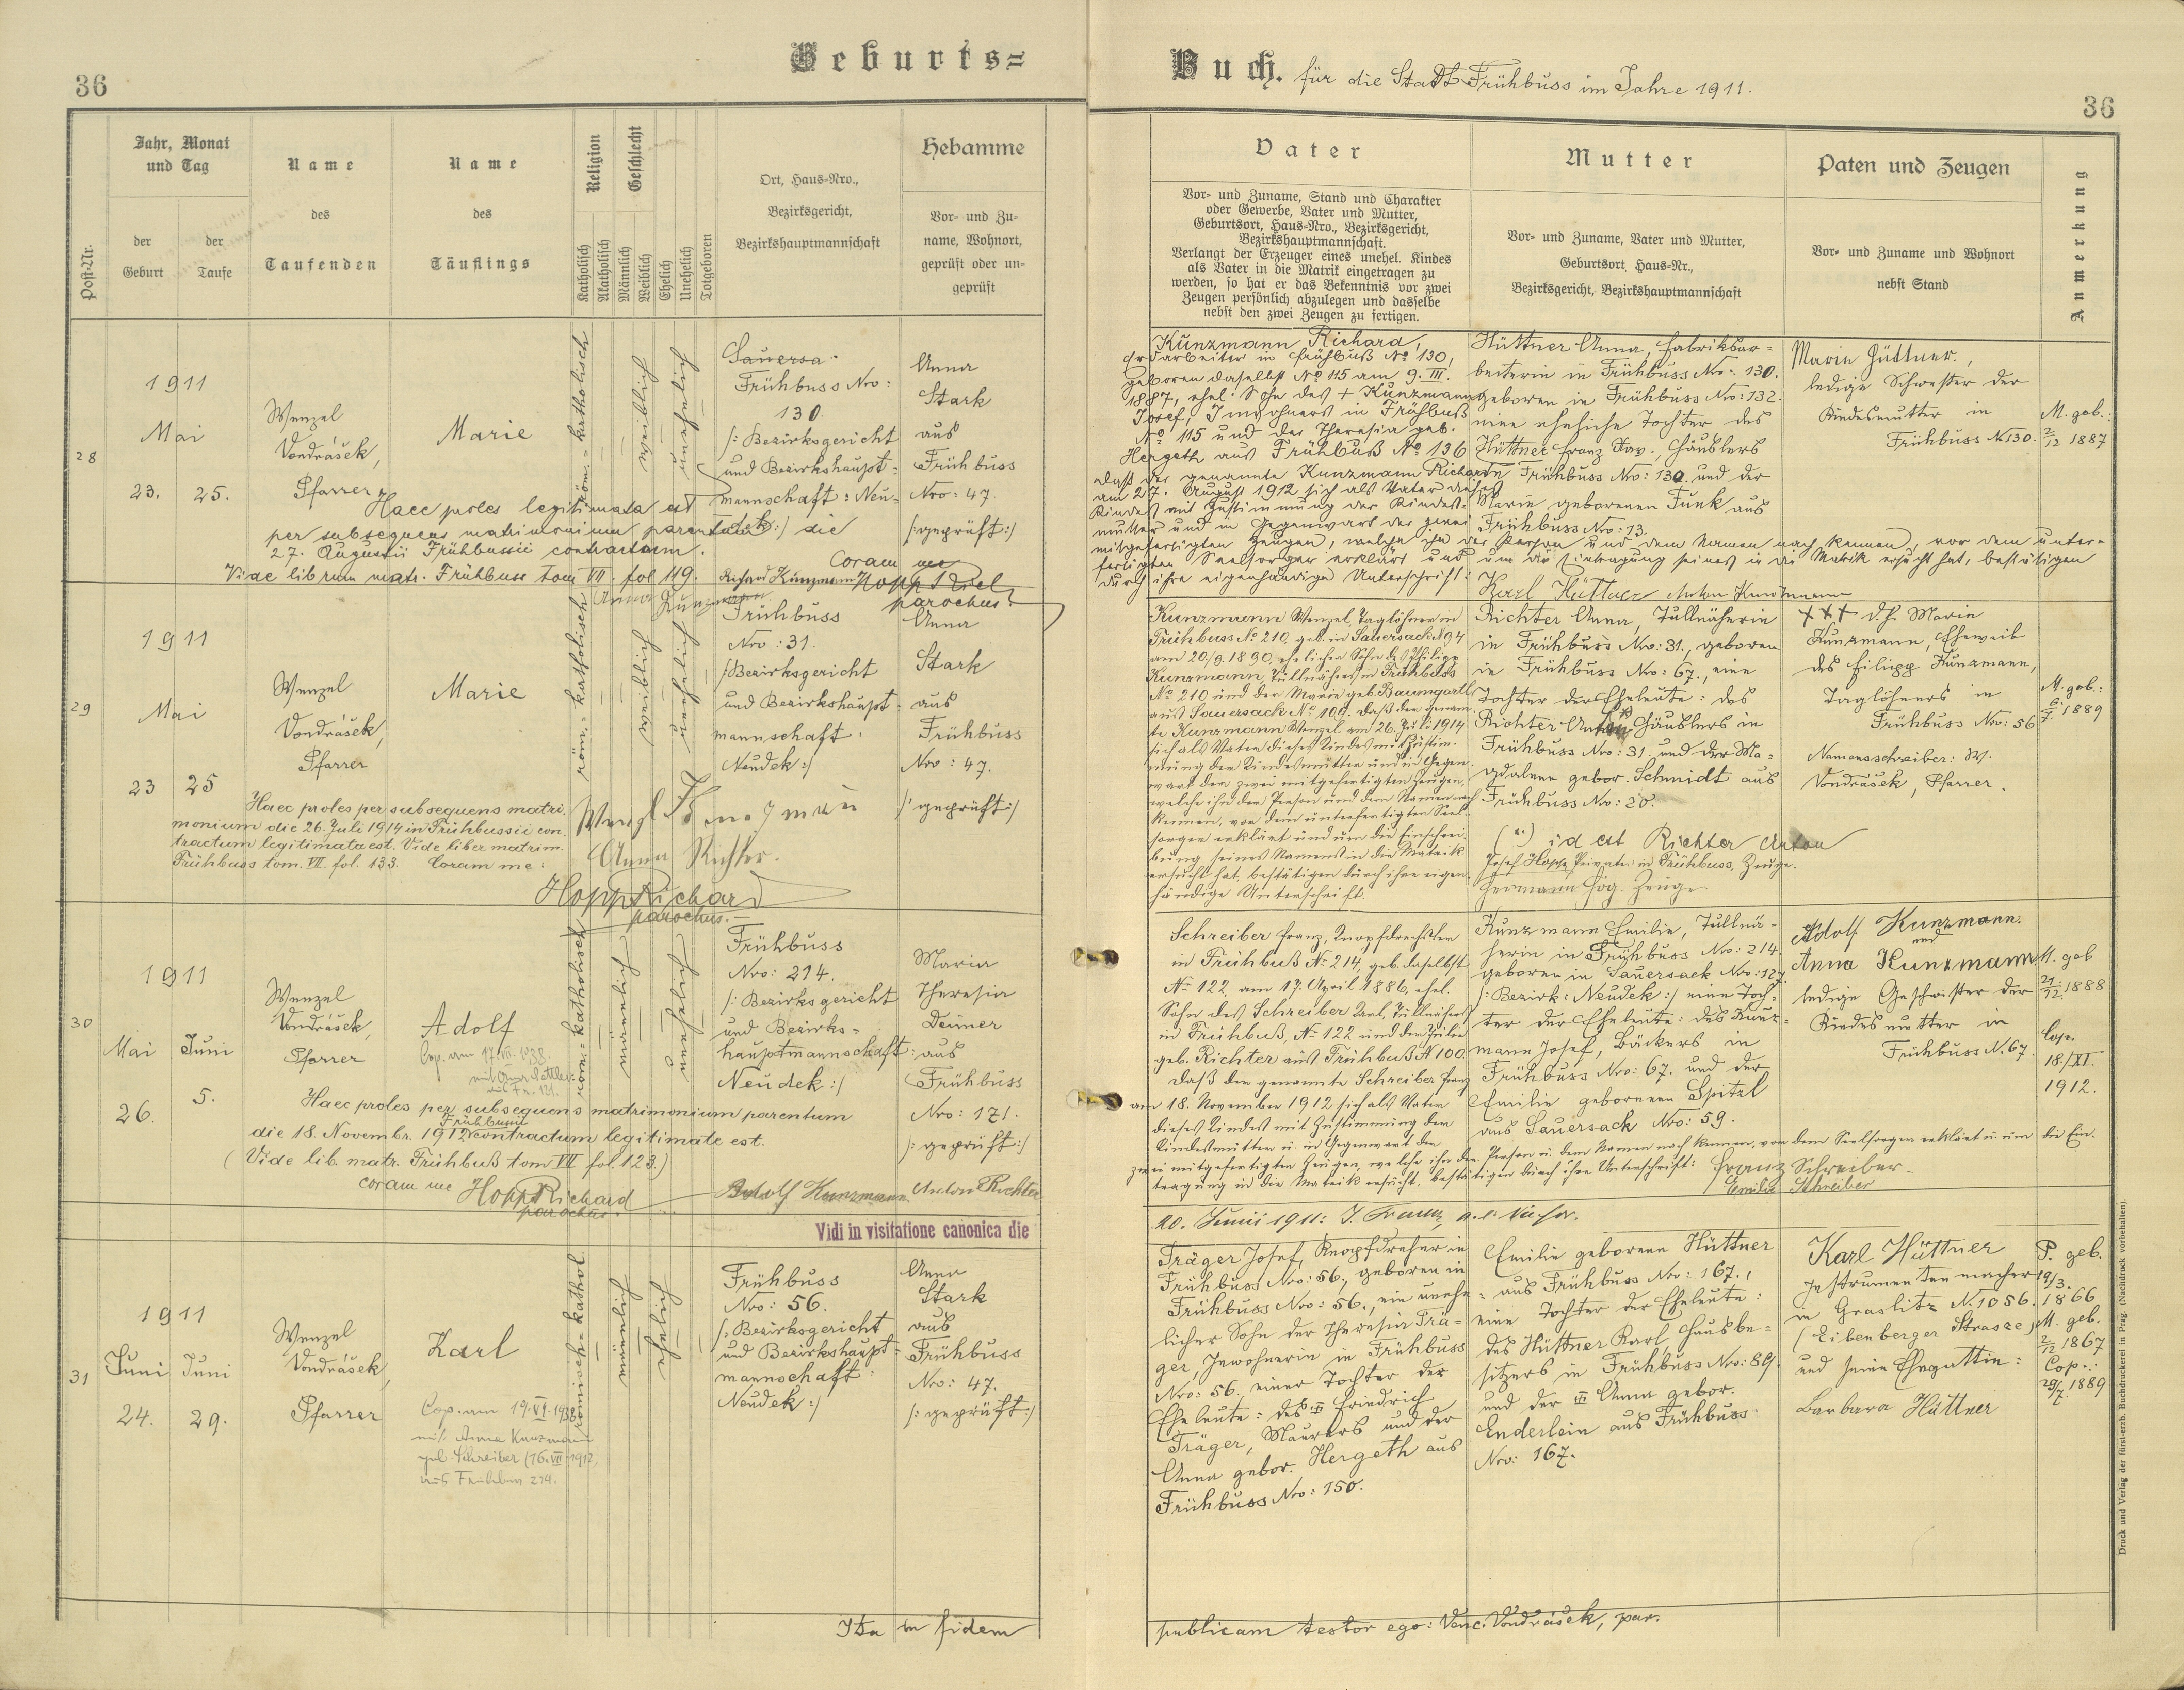 36
Geburts=
Jahr, Monat
und Tag
Post-Nr.
der
Geburt
der
Taufe
Name
des
Taufenden
Name
des
Täuflings
Religion
Katholisch
Akatholisch
Geschlecht
Männlich
Weiblich
Ehelich
Unehelich
Totgeboren
Ort, Haus=Nro.,
Bezirksgericht,
Bezirkshauptmannschaft
Hebamme
Vor= und Zu=
name, Wohnort,
geprüft oder un=
geprüft
28
1911
Mai
23. 25.
Wenzel
Vondrášek,
Pfarrer
Marie
röm.=katholisch
weiblich
unehelich
Sauersa
Frühbuss Nro:
130.
/: Bezirksgericht
und Bezirkshaupt=
mannschaft: Neu=
dek:/
Anna
Stark
aus
Frühbuss
Nro: 47.
/:geprüft:/
Haec proles legitimata est
per subsequens matrimonium parentum die
27. Augustii Frühbussii contractum.
Vide librum matr. Frühbuss tom VII. fol 119.
Coram me
Richard Kunzmann
Anna Kunzmann
parochus.
29
1911
Mai
23 25
Wenzel
Vondrášek,
Pfarrer
Marie
röm.=katholisch
weiblich
unehelich
Frühbuss
Nro: 31.
/:Bezirksgericht
und Bezirkshaupt=
mannschaft:
Neudek:/
Anna
Stark
aus
Frühbuss
Nro: 47.
/:geprüft:/
Haec proles per subsequens matri-
monium die 26. Juli 1914 in Frühbussii con-
tractum legitimata est. Vide liber matrim.
Frühbuss tom. VII. fol. 133. Coram me:
Wenzl Kunzmann
Anna Richter.
Hopp Richard
parochus.
30
1911
Mai Juni
26. 5.
Wenzel
Vondrášek,
Pfarrer
Adolf
röm.=katholisch
männlich
unehelich
Frühbuss
Nro: 214.
/: Bezirksgericht
und Bezirks=
hauptmannschaft:
Neudek:/
Maria
Theresia
Deimer
aus
Frühbuss
Nro: 171.
/: geprüft:/
Haec proles per subsequens matrimonium parentum
die 18. Novembr. 1912 Frühbussii contractum legitimate est.
(Vide lib. matr. Frühbuß tom VII fol. 123.)
coram me Hopp Richard
parochus.
Adolf Kunzmann Anton Richter
Vidi in visitatione canonica die
31
1911
Juni Juni
24. 29.
Wenzel
Vondrášek,
Pfarrer
Karl
Cop. am 19.VI.1938
mit Anna Kunzmann
geb. Schreiber (16.VII.1912,
aus Frühbuss 214.
römisch=kathol.
männlich
ehelich
Frühbuss
Nro: 56.
/:Bezirksgericht
und Bezirkshaupt=
mannschaft:
Neudek:/
Anna
Stark
aus
Frühbuss
Nro: 47.
/: geprüft:/
Ita in fidem
Buch. für die Stadt Frühbuss im Jahre 1911.
36
Vater
Vor= und Zuname, Stand und Charakter
oder Gewerbe, Vater und Mutter,
Geburtsort, Haus=Nro., Bezirksgericht,
Bezirkshauptmannschaft.
Verlangt der Erzeuger eines unehel. Kindes
als Vater in die Matrik eingetragen zu
werden, so hat er das Bekenntnis vor zwei
Zeugen persönlich abzulegen und dasselbe
nebst den zwei Zeugen zu fertigen.
Mutter
Vor= und Zuname, Vater und Mutter,
Geburtsort, Haus=Nr.,
Bezirksgericht, Bezirkshauptmannschaft
Paten und Zeugen
Vor= und Zuname und Wohnort
nebst Stand
Anmerkung
Kunzmann Richard,
Erdarbeiter in Frühbuß No 130,
geboren daselbst No 115 am 9. III.
1887, ehel. Sohn des + Kunzmann
Josef, Inwohners in Frühbuß
No 115 und der Theresia geb.
Hergeth aus Frühbuß No 136
daß der genannte Kunzmann Richard
am 27. August 1912 sich als Vater dieses
Kindes mit Zustimmung der Kindes=
mutter und in Gegenwart der zwei
mitgefertigten Zeugen, welche ihn der Person und dem Namen nach kennen, vor dem unter=
fertigten Seelsorger erklärt und um die Eintragung seines in die Matrik ersucht hat, bestätigen
durch ihre eigenhändige Unterschrift:
Hüttner Anna, Fabriksar=
beiterin in Frühbuss Nro: 130.
geboren in Frühbuss Nro: 132.
eine eheliche Tochter des
Hüttner Franz Xav., Häuslers
in Frühbuss Nro: 130. und der
Marie geborenen Funk aus
Frühbuss Nro: 13.
Karl Hüttner Anton Kunzmann
Marie Hüttner,
ledige Schwester der
Kindesmutter in
Frühbuss No 130.
M. geb.:
2/12 1887
Kunzmann Wenzel, Taglöhner in
Frühbuss No 210, geb. in Sauersack No 94
am 20./9. 1890, ehelicher Sohn des Philipp
Kunzmann, Tüllnähers in Frühbuss
No 210 und der Maria geb. Baumgartl
aus Sauersack No 100. Daß der genann-
te Kunzmann Wenzel am 26. Juli 1914
sich als Vater dieses Kindes mit Zustim-
mung der Kindesmutter und in Gegen-
wart der zwei mitgefertigten Zeugen,
welche ihn der Person und dem Namen nach
kennen, vor dem unterfertigten Seel-
sorger erklärt und um die Einschrei-
bung seines Namens in die Matrik
ersucht hat, bestätigen durch ihre eigen-
händige Unterschrift.
Richter Anna, Tüllnäherin
in Frühbuss Nro: 31., geboren
in Frühbuss Nro: 67., eine
Tochter der Eheleute: des
Richter Anton, Häuslers in
Frühbuss Nro: 31. und der Ma=
gdalena gebor. Schmidt aus
Frühbuss Nro: 20.
id est Richter Anton
Josef Hopp, Privatier in Frühbuss, Zeuge.
Hermann Zeuge
+++ d.h. Marie
Kunzmann, Eheweib
des Filipp Kunzmann,
Taglöhners in
Frühbuss Nro: 56
Namensschreiber: W.
Vondrášek, Pfarrer.
M. geb.:
6/7. 1889
Schreiber Franz, Knopfdrechsler
in Frühbuß No 214, geb. daselbst
No 122, am 17. April 1886, ehel.
Sohn des Schreiber Karl, Tüllnähers
in Frühbuß, No 122 und der Julie
geb. Richter aus Frühbuß No 100.
Daß der genannte Schreiber Franz
am 18. November 1912 sich als Vater
dieses Kindes mit Zustimmung der
Kindesmutter u. in Gegenwart der
zwei mitgefertigten Zeugen, welche ihn der Person u. dem Namen nach kennen, vor dem Seelsorger erklärt u. um die Ein-
tragung in die Matrik ersucht, bestätigen durch ihre Unterschrift: Franz Schreiber
Emilie Schreiber
Kunzmann Emilie, Tüllnä=
herin in Frühbuss Nro: 214.
geboren in Sauersack Nro: 127.
/:Bezirk: Neudek:/ eine Toch=
ter der Eheleute: des Kunz=
mann Josef, Bäckers in
Frühbuss Nro: 67. und der
Emilie geborenen Spitzl
aus Sauersack Nro: 59.
Adolf Kunzmann.
und
Anna Kunzmann
ledige Geschwister der
Kindesmutter in
Frühbuss N. 67.
M. geb
21/12. 1888
Cop.
18./XI.
1912.
20. Junii 1911:
Träger Josef, Knopfdreher in
Frühbuss Nro: 56., geboren in
Frühbuss Nro: 56., ein unehe=
licher Sohn der Theresia Trä=
ger, Inwohnerin in Frühbuss
Nro: 56. einer Tochter der
Eheleute: des Friedrich
Träger, Maurers und der
Anna gebor. Hergeth aus
Frühbuss Nro: 150.
Emilie geborene Hüttner
aus Frühbuss Nro: 167.,
eine Tochter der Eheleute:
des Hüttner Karl, Hausbe=
sitzers in Frühbuss Nro: 89.
und der Anna gebor.
Enderlein aus Frühbuss
Nro: 167.
Karl Hüttner
Instrumentenmacher
in Graslitz N. 1056.
(Eibenberger Strasze)
und seine Ehegattin:
Barbara Hüttner
P. geb.
19/3.
1866
M. geb.
2/12 1867
Cop.:
29/7. 1889
publicam testor ego: Venc. Vondrášek, par.
Druck und Verlag der fürst-erzb. Buchdruckerei in Prag. (Nachdruck vorbehalten).